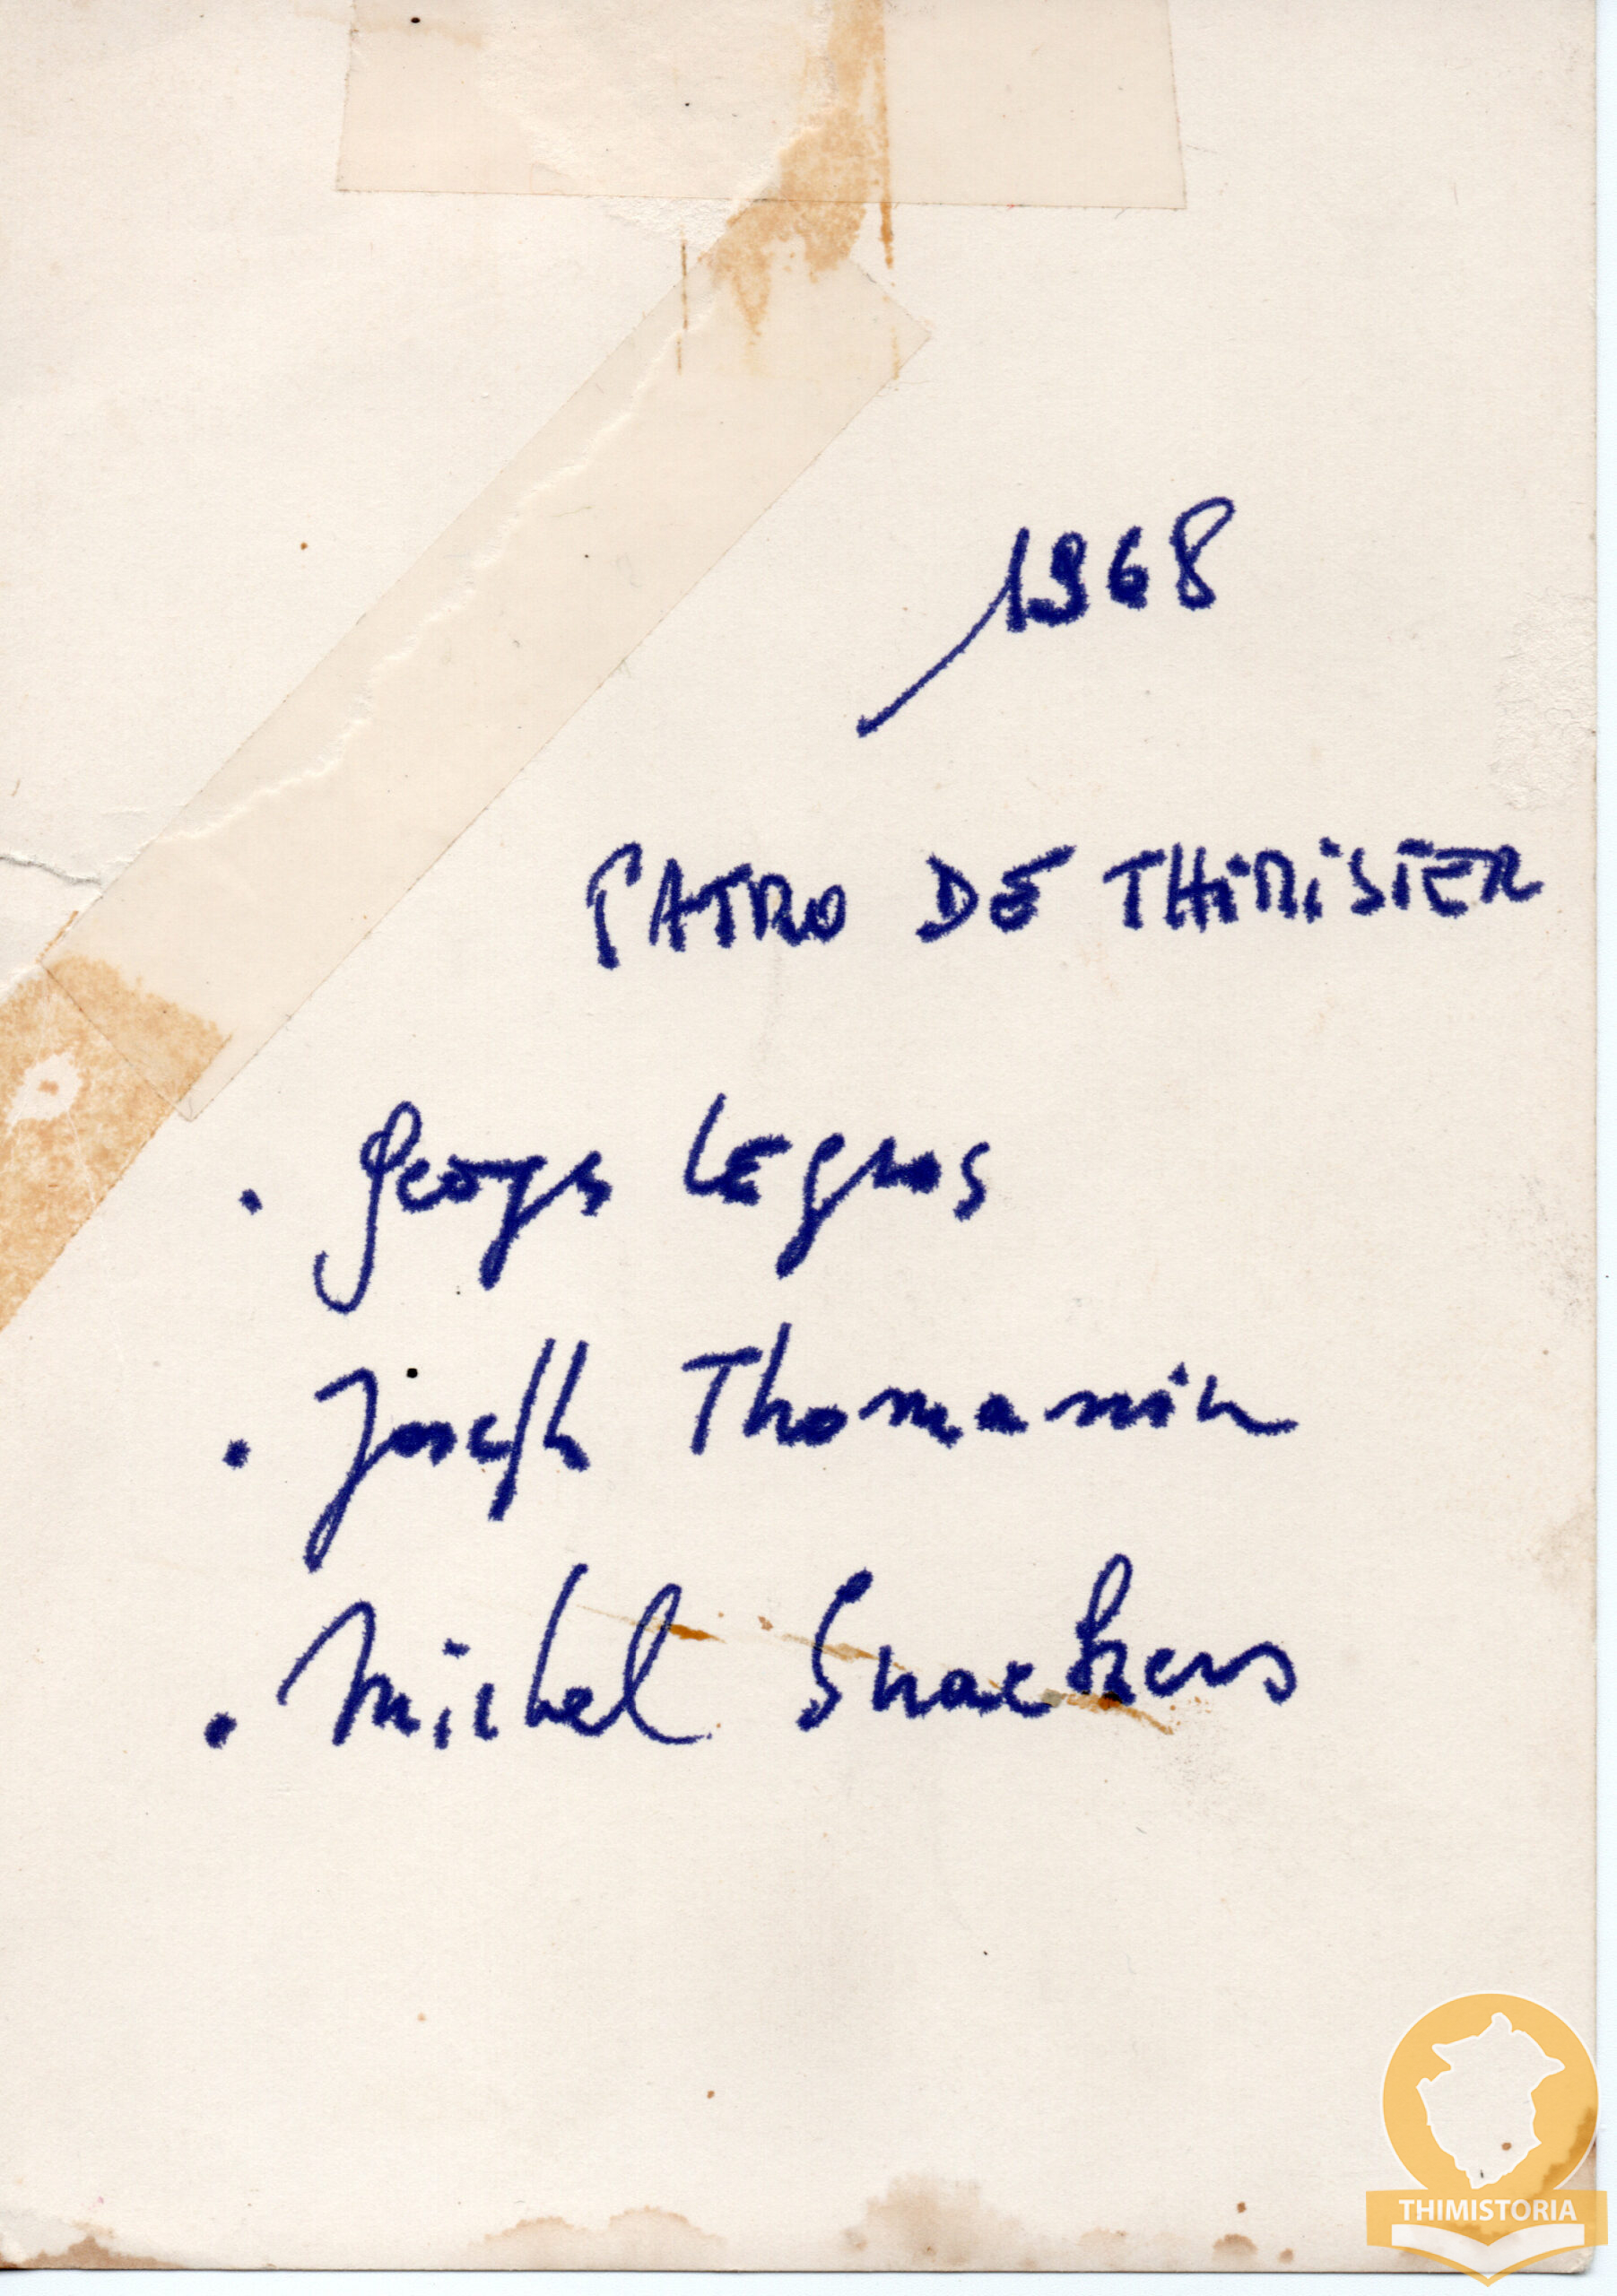 1968
PATRO DE THIMISTER
. Georges LEgros
. Joseph Thomanin
. Michel Snackers
THIMISTORIA